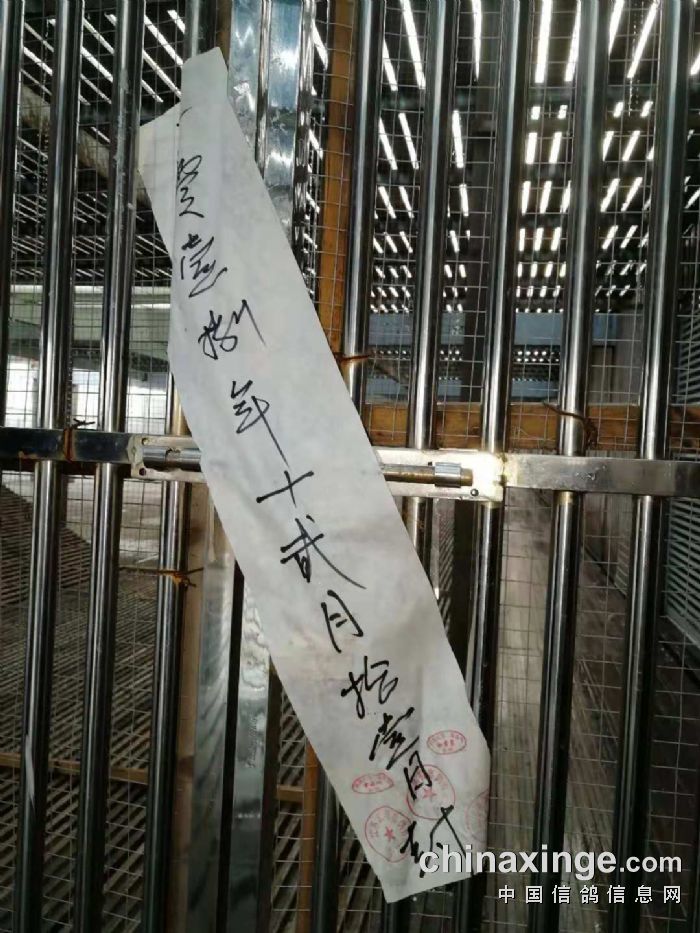 壹捌年十贰月拾壹日封
chinaxinge.com
中国信鸽信息网